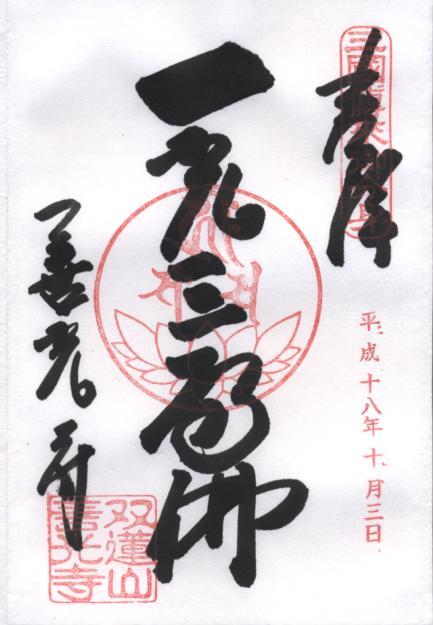 奉拝
平成十八年十月三日
一光三尊佛
善光寺
双蓮山
善光寺